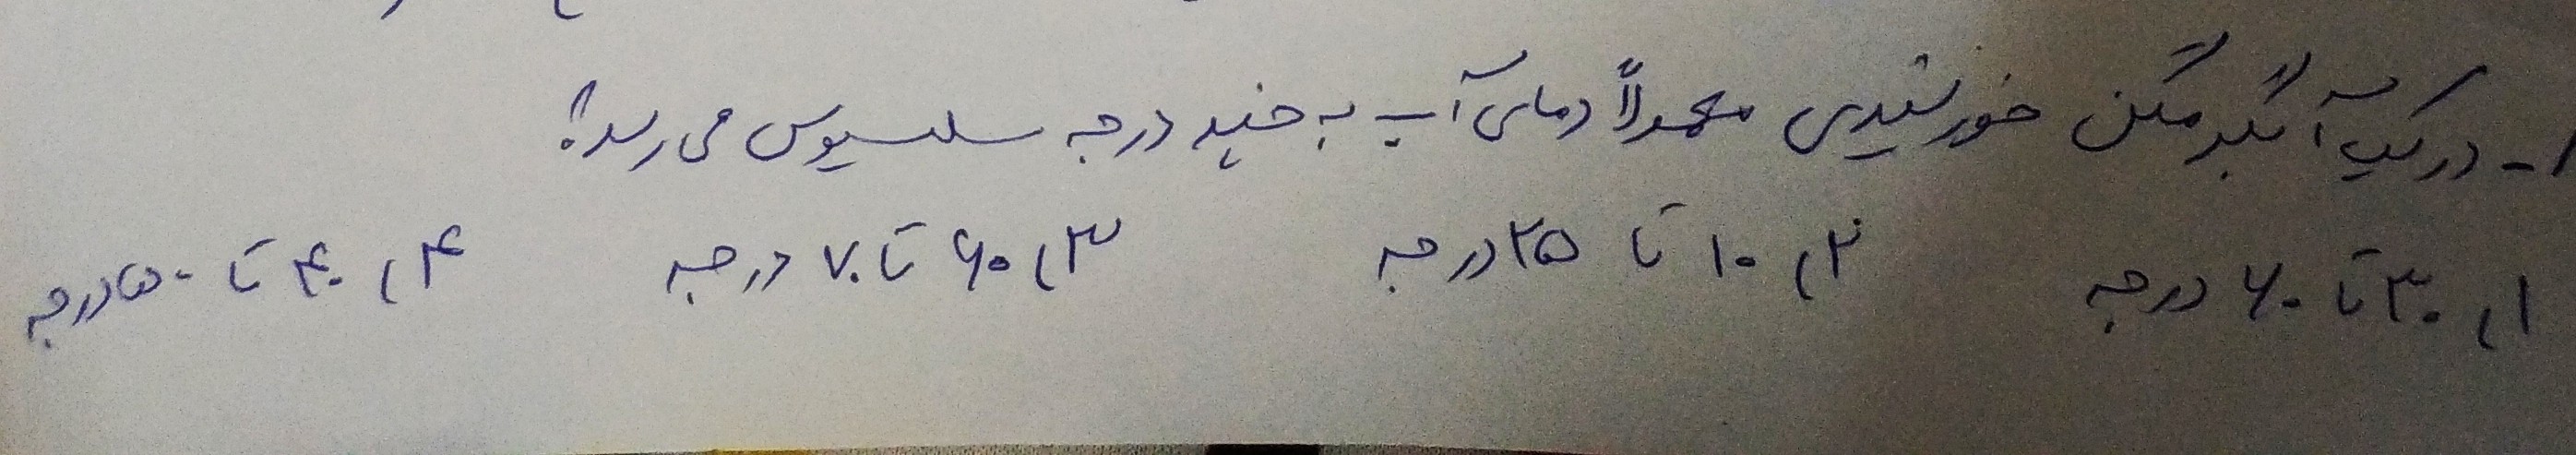 ۱- در یک آبگرمکن خورشیدی معمولاً دمای آب به چند درجه سلسیوس می‌رسد؟
۱) ۳۰ تا ۶۰ درجه ۲) ۱۰ تا ۲۵ درجه ۳) ۶۰ تا ۷۰ درجه ۴) ۴۰ تا ۵۰ درجه